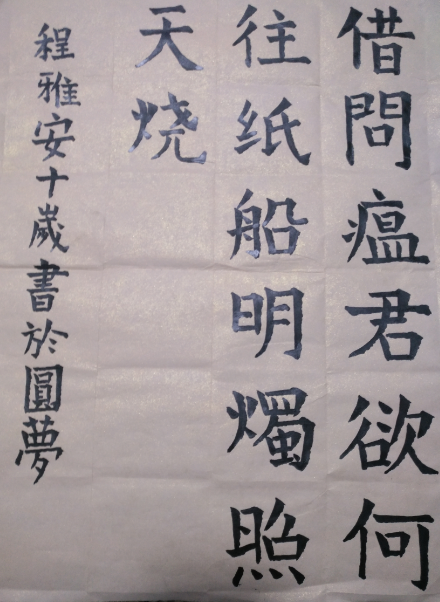 借問瘟君欲何
往纸船明燭照
天烧
程雅安十歲書於圓夢